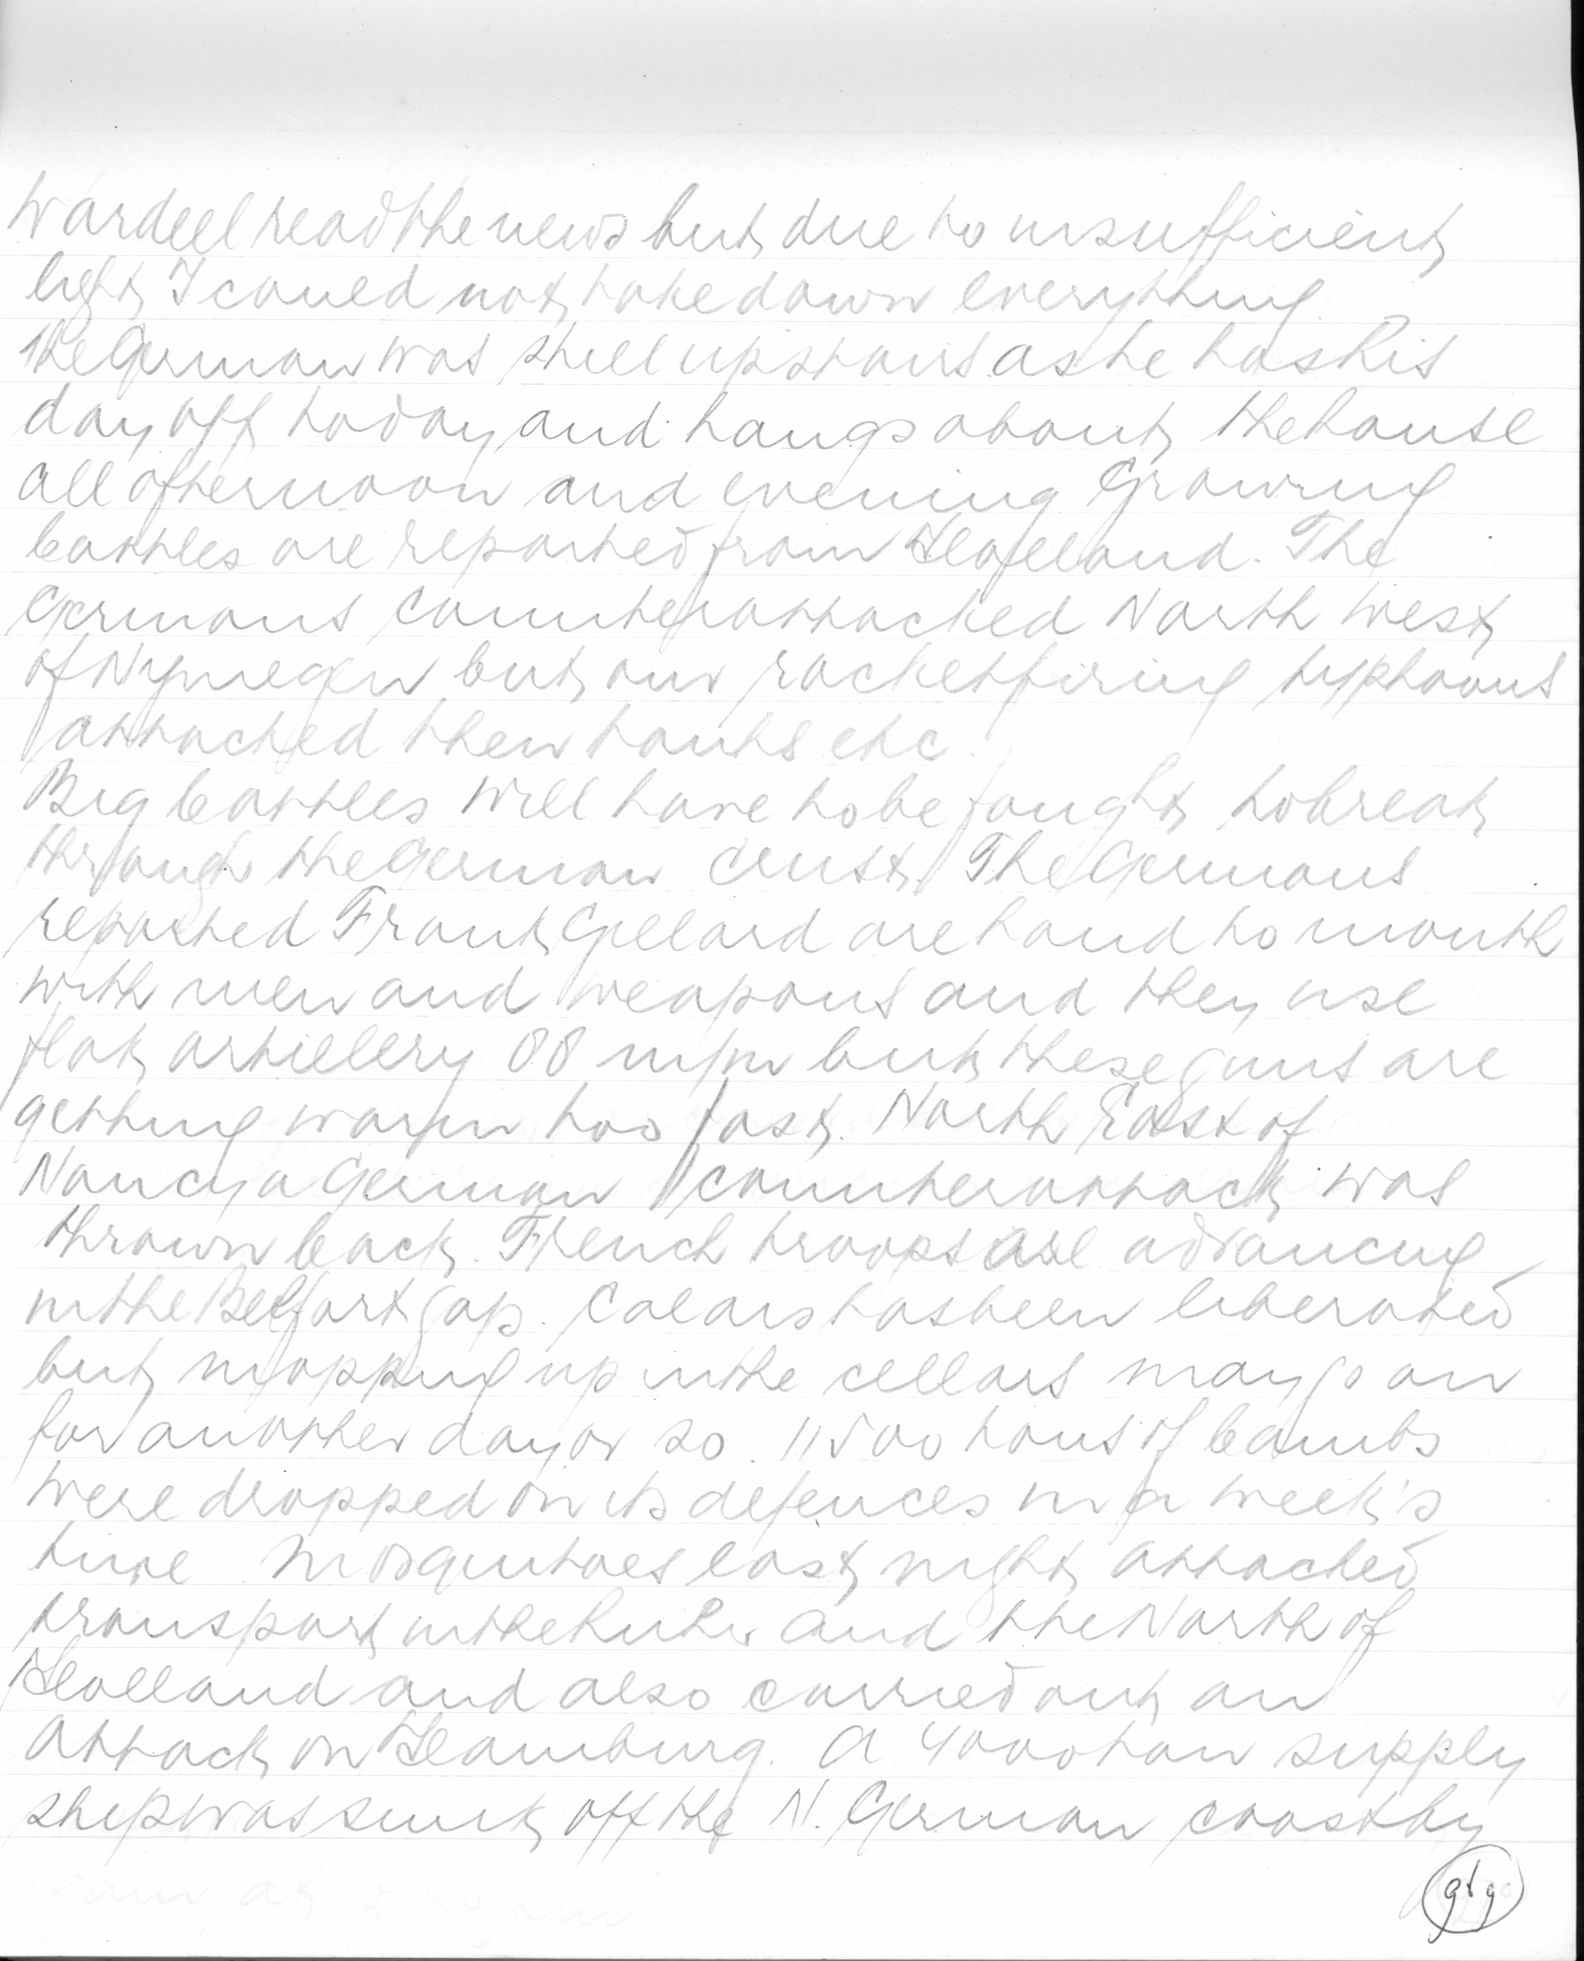 Wardell read the news but due to insufficient
light I could not take down everything.
The German was still upstairs as he has his
day off today and hangs about the house
all afternoon and evening Growing
battles are reported from Holland. The
Germans counterattacked North West
of Nymegen but our rocketfiring typhoons
attacked their tanks etc.
Big battles will have to be fought to break
through the German crust. The Germans
reported Frank Gillard are hand to mouth
with men and weapons and they use
flak artillery 88 m/m but these guns are
getting warm too fast. North East of
Nancy a German counterattack was
thrown back. French troops are advancing
in the Belfort gap. Calais has been liberated
but mopping up in the cellars may go on
for another day or so. 11500 tons of bombs
were dropped on its defences in a week's
time. Mosquitoes last night attacked
transport in the Ruhr and the North of
Holland and also carried out an
attack on Hamburg. A 4000 ton supply
ship was sunk off the N. German coast by